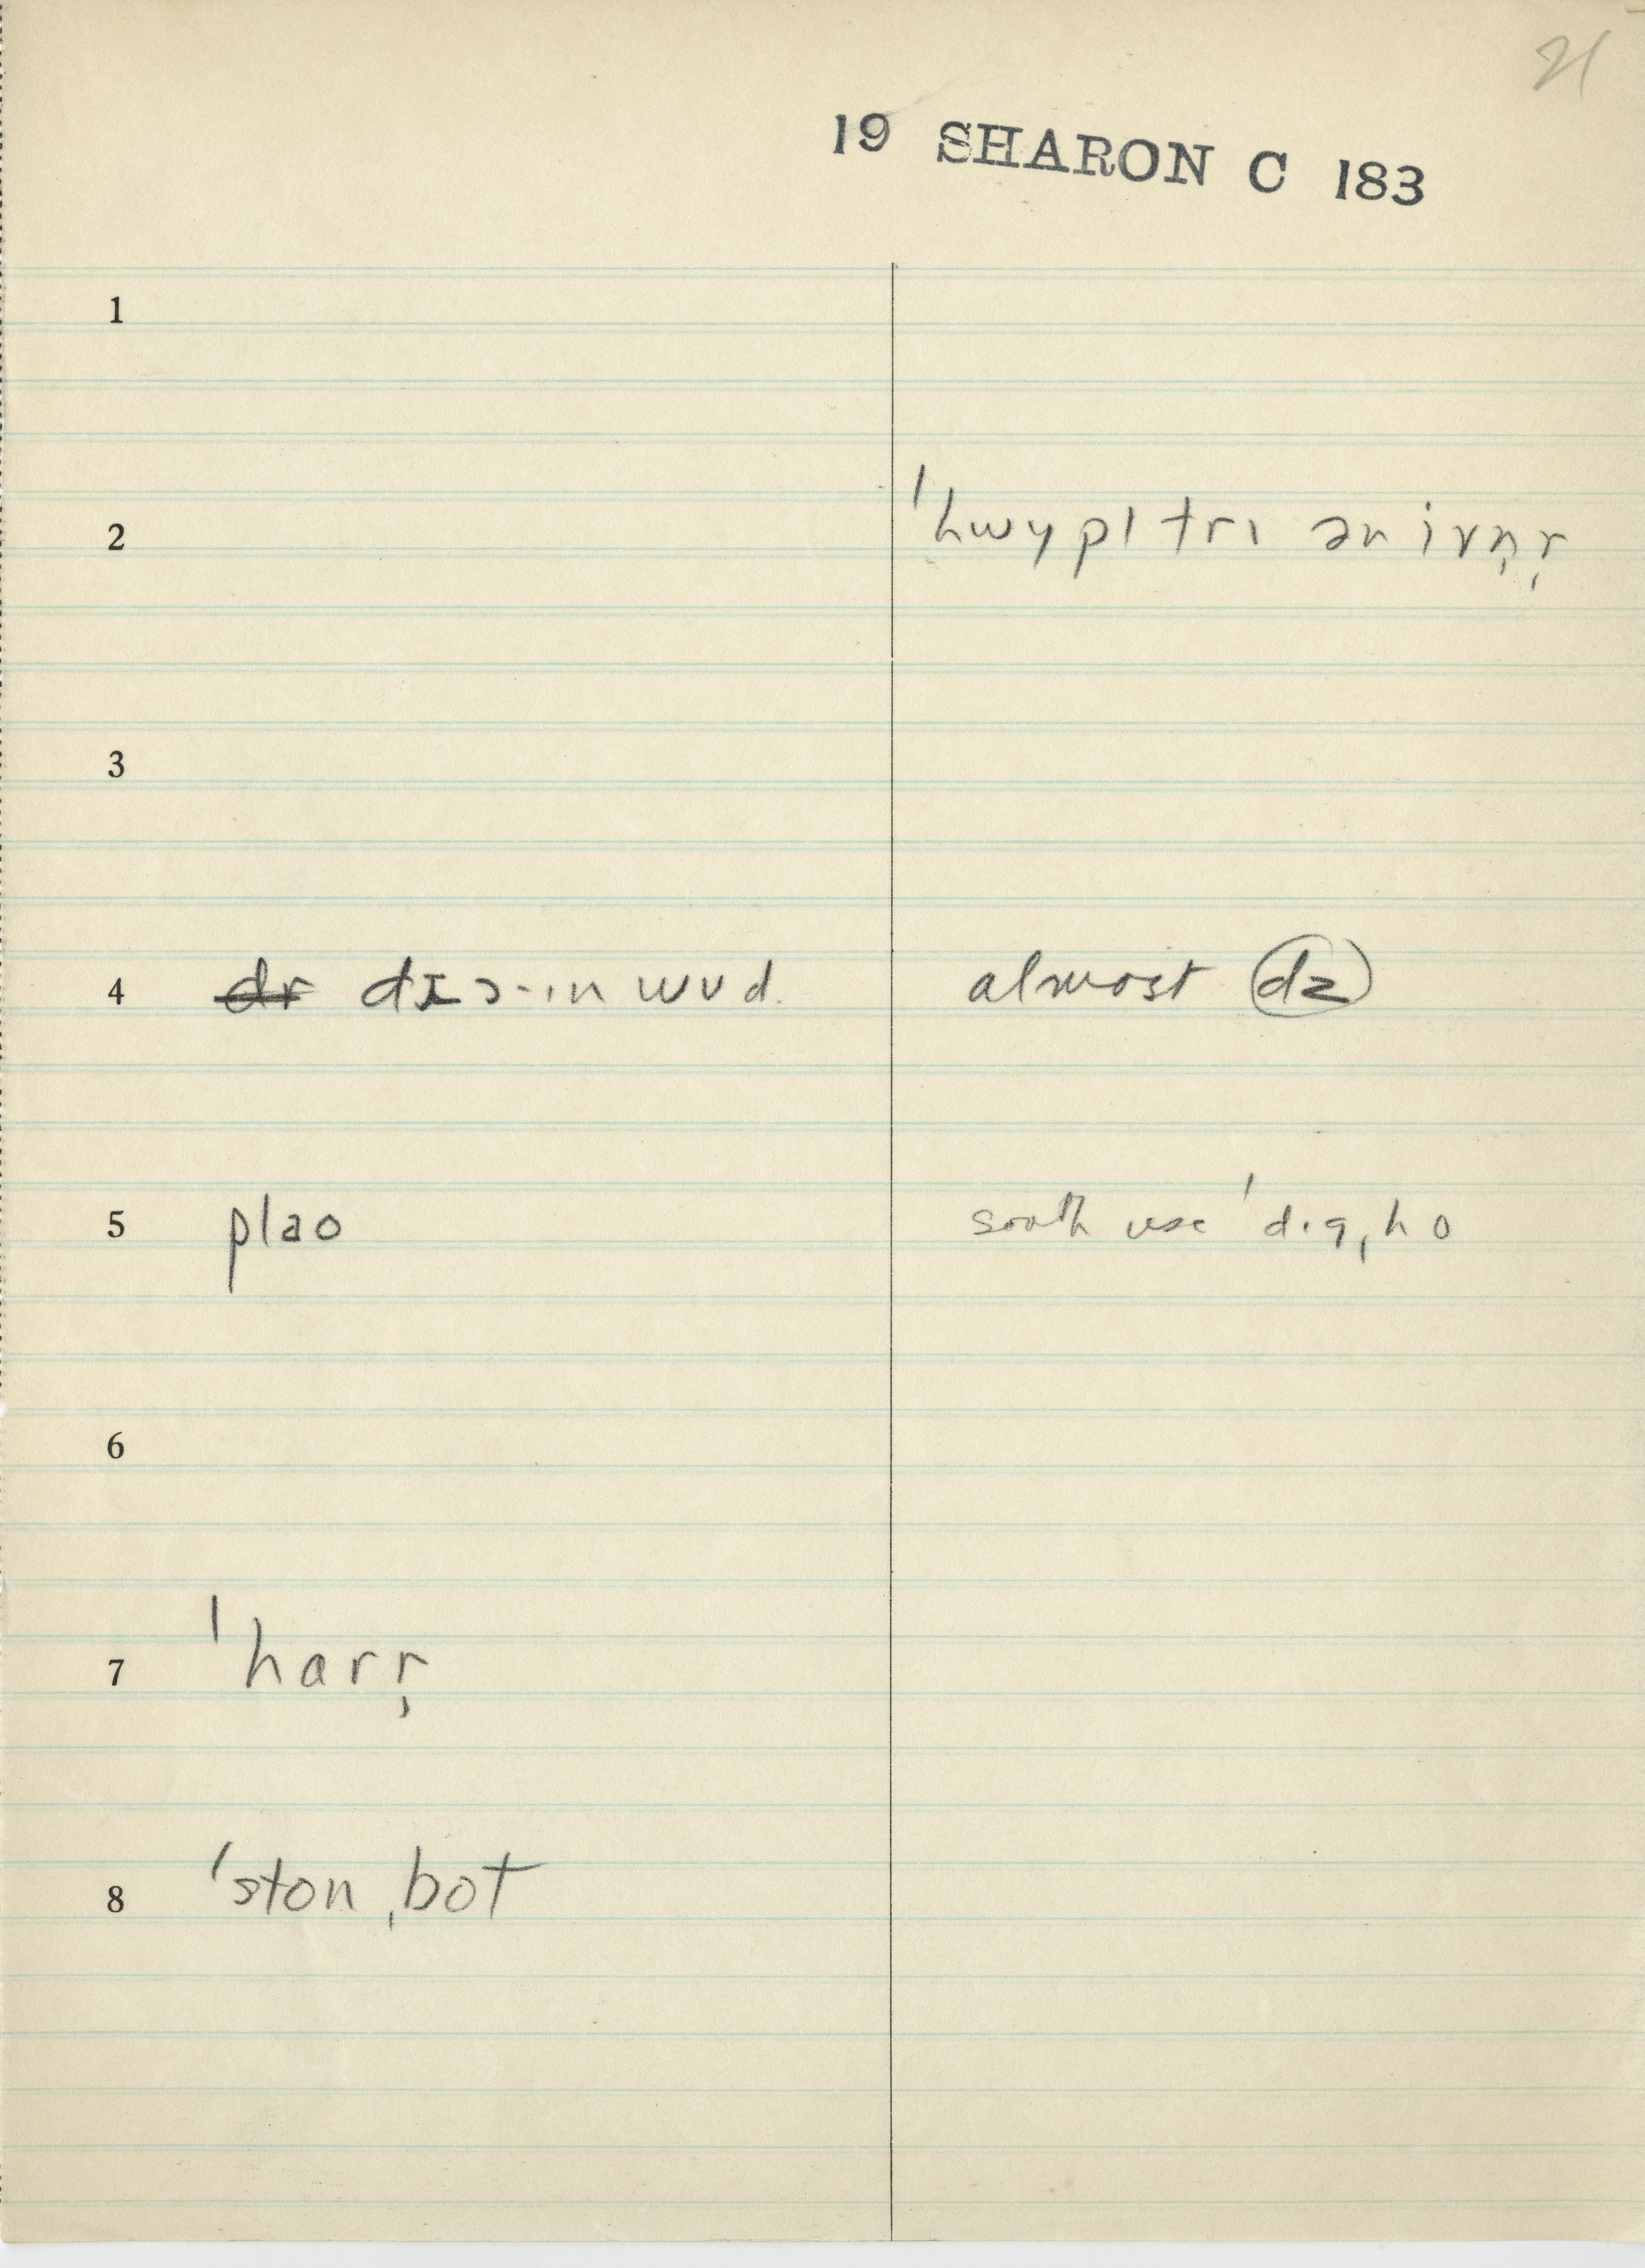 21
19 SHARON C 183
1
2 ˈhwypl trɪ ən ivṇṛ
3
4 ~~dr~~ dɪɔ·ɪn wʊd. almost dz
5 plao south use ˈdɪg ˌho
6
7 ˈharṛ
8 ˈston ˌbot